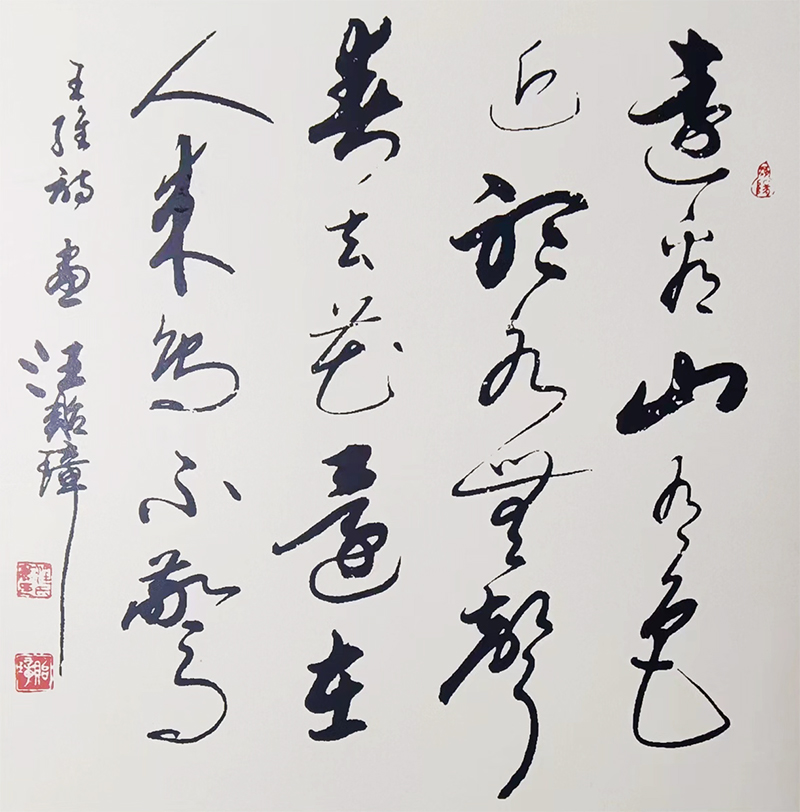 遠看山有色
近聽水無聲
春去花還在
人來鳥不驚
王維詩畫 汪貽璋
貽璋